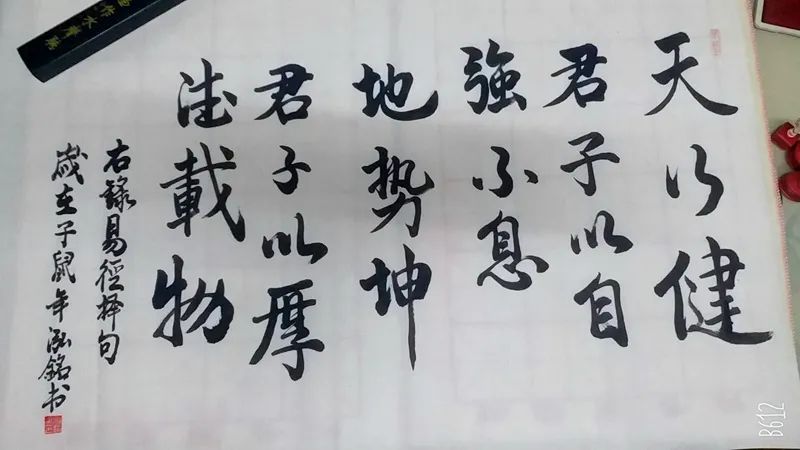 天行健
君子以自
強不息
地势坤
君子以厚
德載物
右録易徑择句
歲在子鼠年泓銘书
B612